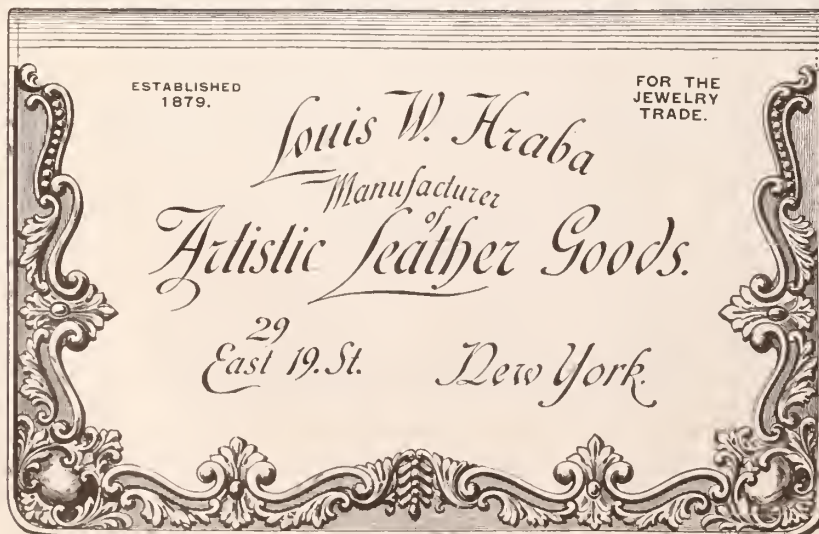 ESTABLISHED
1879.
FOR THE
JEWELRY
TRADE.
Louis W. Hraba
Manufacturer
of
Artistic Leather Goods.
29
East 19. St.
New York.